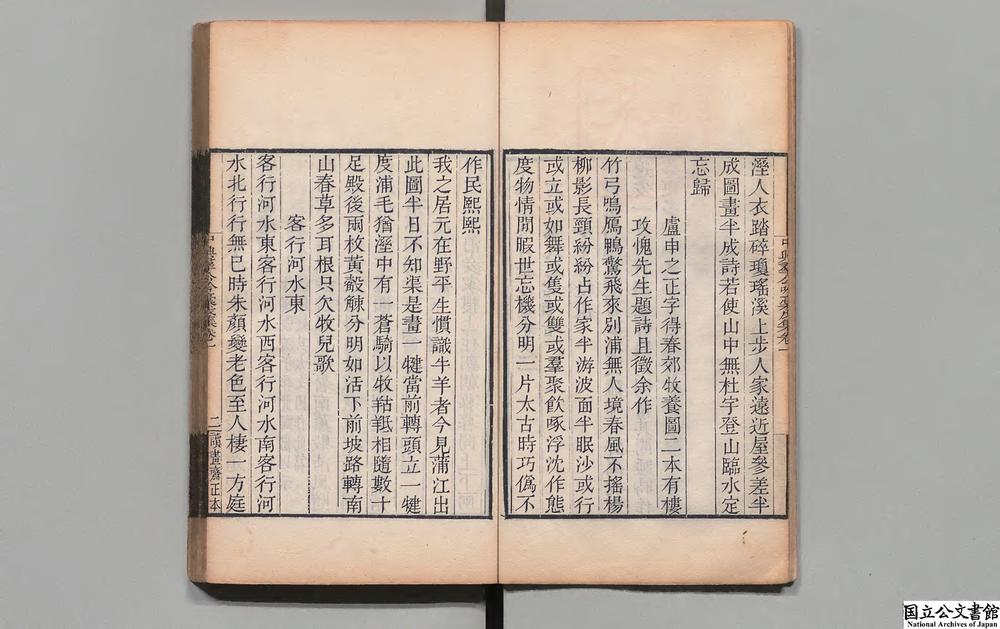 溼人衣踏碎瓊瑤溪上步人家遠近屋參差半
成圖畫半成詩若使山中無杜宇登山臨水定
忘歸
盧申之正字得春郊牧養圖二本有樓
攻愧先生題詩且徵余作
竹弓鳴鴈鴨驚飛來別浦無人境春風不搖楊
柳影長頸紛紛占作家半游波面半眠沙或行
或立或如舞或隻或雙或羣聚飲啄浮沈作態
度物情閒暇世忘機分明一片太古時巧僞不
作民熙熙
我之居元在野平生慣識牛羊者今見蒲江出
此圖半日不知渠是畫一犍當前轉頭立一犍
度浦毛猶溼中有一蒼騎以牧羖羝相隨數十
足殿後兩枚黃觳觫分明如活下前坡路轉南
山春草多耳根只欠牧兒歌
客行河水東
客行河水東客行河水西客行河水南客行河
水北行行無已時朱顏變老色至人棲一方庭
中興羣公吟稾戊集卷一
二
讀畫齋正本
国立公文書館
National Archives of Japan